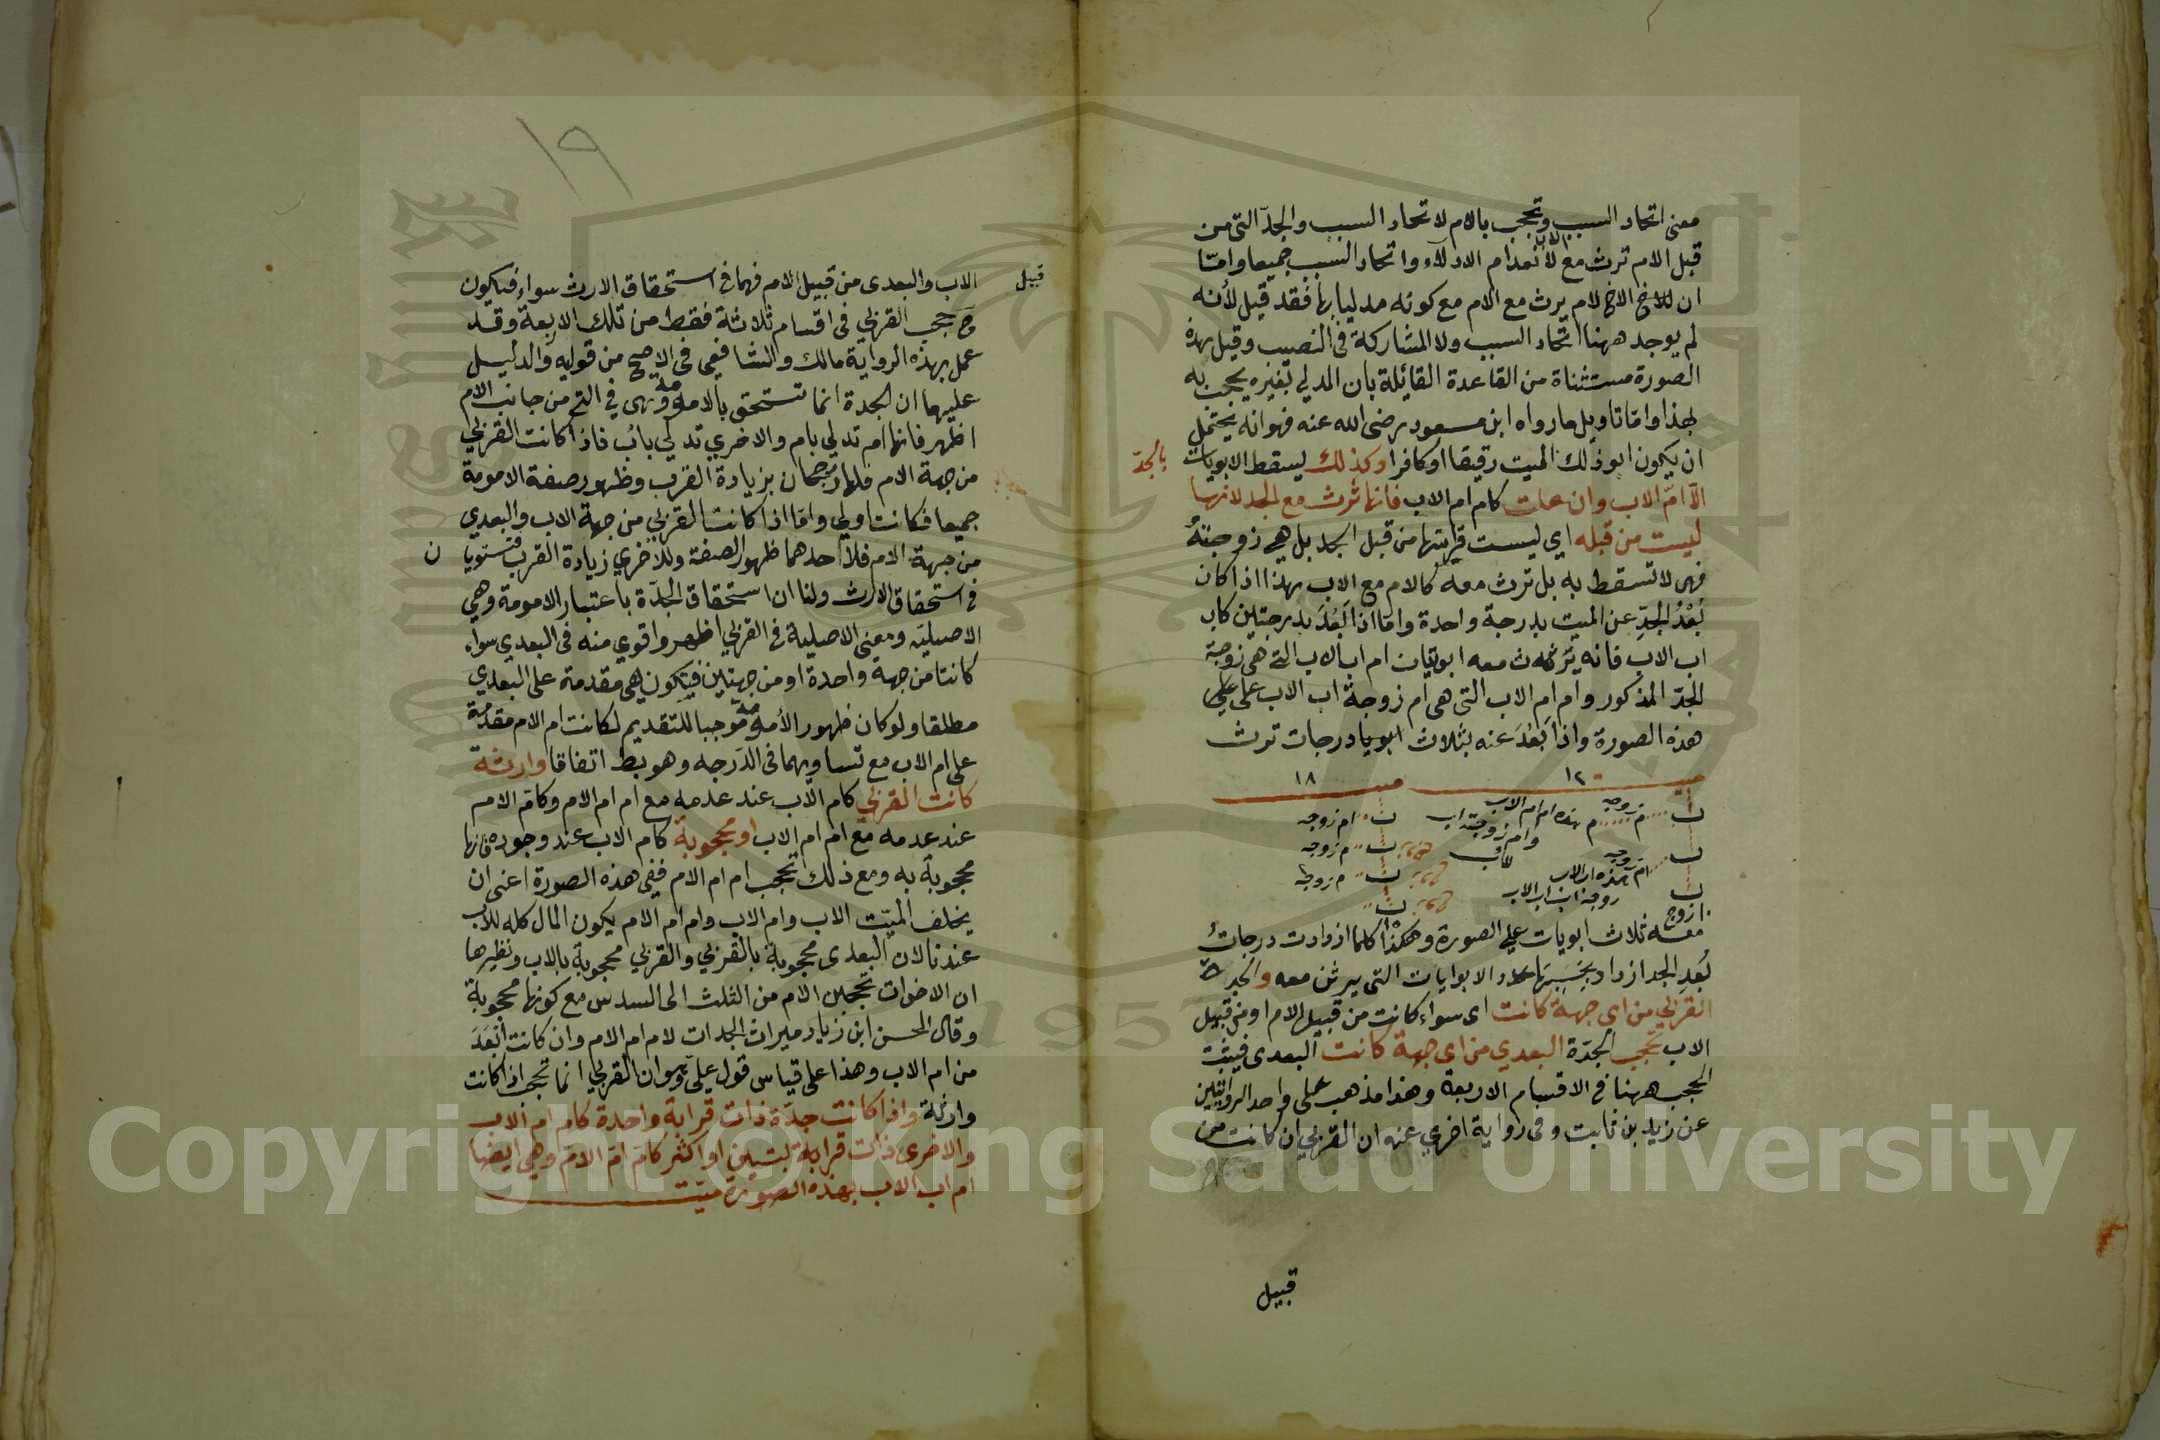 معنى اتحاد السبب وتحجب بالام لاتحاد السبب والجدّ التى من
قبل الام ترث مع الاب لانعدام الادلاء واتحاد السبب جميعا وامّا
ان الاخ لام يرث مع الام مع كونه مدليا بها فقد قيل لأنه
لم يوجد ههنا اتحاد السبب ولا المشاركة فى النصيب وقيل هذه
الصورة مستثناة من القاعدة القائلة بان المدلي بغيره يحجب به
لهذا وامّا تاويل ما رواه ابن مسعود رضى الله عنه فهو انه يحتمل
ان يكون ابو ذلك الميت رقيقا او كافرا وكذلك يسقط الابويات
بالجدّ
الّا امّ الاب وان علت كام ام الاب فانها ترث مع الجد لانها
ليست من قبله اي ليست قرابتها من قبل الجد بل هي زوجته
فهى لا تسقط به بل ترث معه كالام مع الاب هذا اذا كان
بُعْدُ الجدِّ عن الميت بدرجة واحدة وامّا اذا بَعُدَ بدرجتين كاب
اب الاب فانه يرث معه ابويتان ام اب الاب التى هى زوجة
الجدّ المذكور وام ام الاب التى هى ام زوجة اب الاب على
هذه الصورة واذا بَعُدَ عنه بثلاث درجات ترث
ميت ١٢ ميت ١٨
ب م زوجه م هذه ام ام الاب ب ام زوجه
وام زوجة اب
ب الاب ب م زوجه
ام زوجه هذه ام اب الاب ب م زوجه
ب زوجة اب اب الاب ب
ازوج
معه ثلاث ابويات على الصورة وهكذا كلما ازدادت درجات
بُعدِ الجد ازداد بحسبها عدد الابوايات التى يرثن معه والجدة
القربي من اي جهة كانت اى سواء كانت من قبيل الام او من قبيل
الاب تحجب الجدّة البعدي من اي جهة كانت البعدى فيثبت
الحجب ههنا في الاقسام الاربعة وهذا مذهب على واحد الروايتين
عن زيد بن ثابت وفى رواية اخري عنه ان القربي ان كانت من
قبيل
١٩
قبيل
الاب والبعدى من قبيل الام فهما فى استحقاق الارث سواء فيكون
ح حجب القربي فى اقسام ثلاثة فقط من تلك الاربعة وقد
عمل بهذه الرواية مالك والشافعى فى الاصح من قوليه والدليل
عليهما ان الجدة انما تستحق بالامومة وهى في التى من جانب الام
اظهر فانها ام تدلي بام والاخري تدلي باب فاذا كانت القربي
من جهة الام فلها رجحان بزيادة القرب وظهور صفة الامومة
جميعا فكانت اولي وامّا اذا كانت القربي من جهة الاب والبعدي
من جهة الام فلاحدهما ظهور الصفة وللاخري زيادة القرب فتستويا
ن
فى استحقاق الارث ولنا ان استحقاق الجدّة باعتبار الامومة وهي
الاصلية ومعنى الاصلية فى القربي اظهر واقوي منه فى البعدي سواء
كانتا من جهة واحدة او من جهتين فيكون هى مقدمة على البعدي
مطلقا ولو كان ظهور الأمومة موجبا للتقديم لكانت ام الام مقدمة
على ام الاب مع تساويهما فى الدرجه وهو بط اتفاقا وارثة
كانت القربي كام الاب عند عدمه مع ام ام الام وكام الام
عند عدمه مع ام ام الاب او محجوبة كام الاب عند وجوده فانها
محجوبة به ومع ذلك تحجب ام ام الام ففى هذه الصورة اعنى ان
يخلف الميّت الاب وام الاب وام ام الام يكون المال كله للاب
عندنا لان البعدى محجوبة بالقربي والقربي محجوبة بالاب ونظيرها
ان الاخوات تحجبن الام من الثلث الى السدس مع كونها محجوبة
وقال الحسن ابن زياد ميراث الجدات لام ام الام وان كانت ابْعَدَ
من ام الاب وهذا على قياس قول علي وهو ان القربي انما تحجب اذا كانت
وارثة واذا كانت جدّة ذات قرابة واحدة كام ام الاب
والاخرى ذات قرابتين او اكثر كام ام الام وهي ايضا
ام اب الاب بهذه الصورة ميت
Copyright © King Saud University
1957